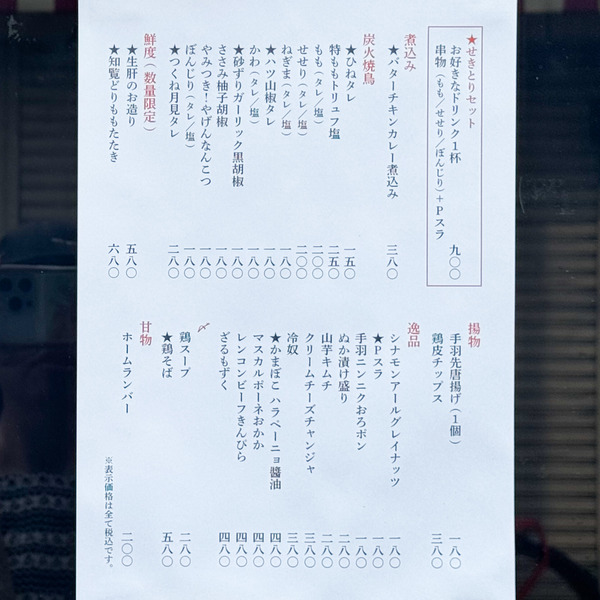 ★せきとりセット
お好きなドリンク1杯
串物（もも／せせり／ぼんじり）＋Pスラ 九〇〇
煮込み
★バターチキンカレー煮込み 三八〇
炭火焼鳥
★ひねタレ 一五〇
特ももトリュフ塩 二五〇
もも（タレ／塩） 二〇〇
せせり（タレ／塩） 二〇〇
ねぎま（タレ／塩） 一八〇
★ハツ山椒タレ 一八〇
かわ（タレ／塩） 一八〇
★砂ずりガーリック黒胡椒 一八〇
ささみ柚子胡椒 一八〇
やみつき！やげんなんこつ 一八〇
ぼんじり（タレ／塩） 一八〇
★つくね月見タレ 二八〇
鮮度（数量限定）
★生肝のお造り 五八〇
★知覧どりももたたき 六八〇
揚物
手羽先唐揚げ（1個） 一八〇
鶏皮チップス 三八〇
逸品
シナモンアールグレイナッツ 一八〇
★Pスラ 一八〇
手羽ニンニクおろポン 一八〇
ぬか漬け盛り 二八〇
山芋キムチ 二八〇
クリームチーズチャンジャ 三八〇
冷奴 三八〇
★かまぼこ ハラペーニョ醤油 四八〇
マスカルポーネおかか 四八〇
レンコンビーフきんぴら 四八〇
ざるもずく 四八〇
〆
鶏スープ 二八〇
★鶏そば 五八〇
甘物
ホームランバー 二〇〇
※表示価格は全て税込です。